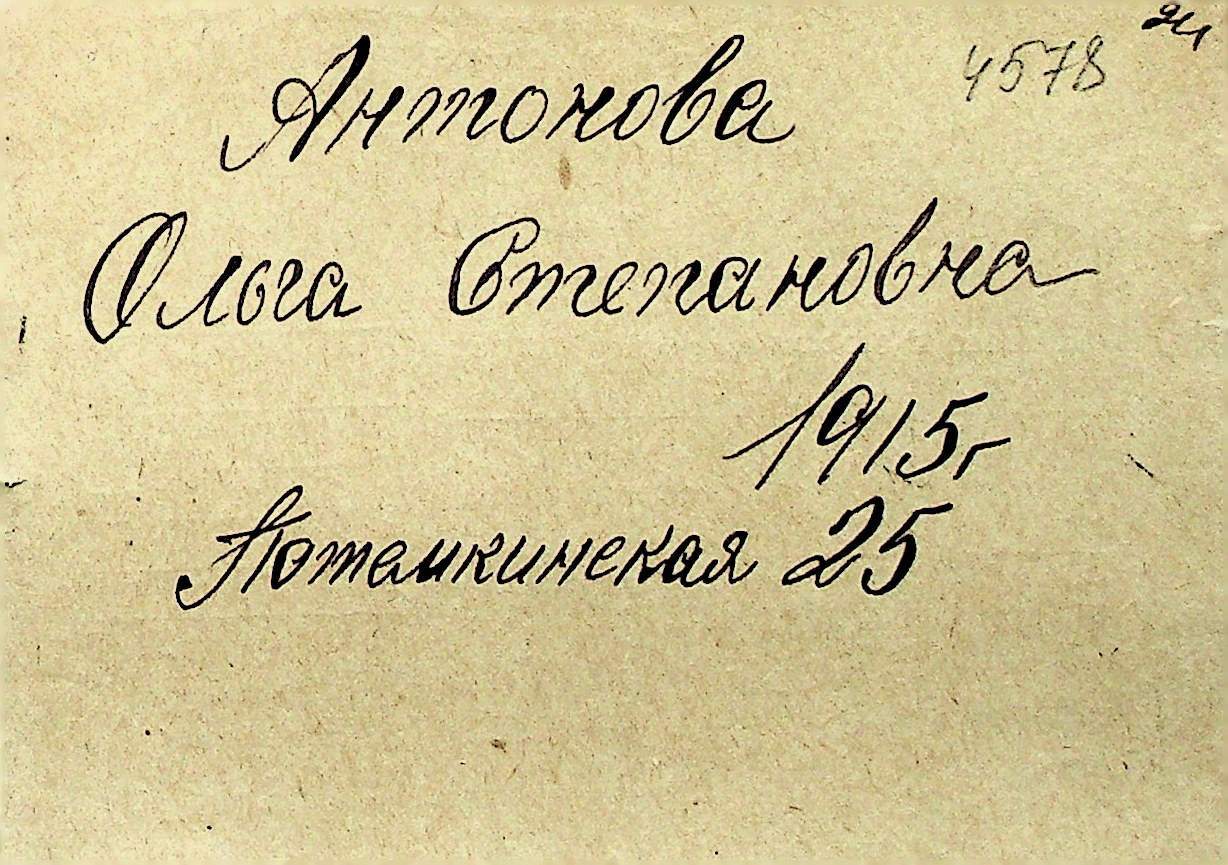 4578
Антонова
Ольга Степановна
1915г
Потемкинская 25